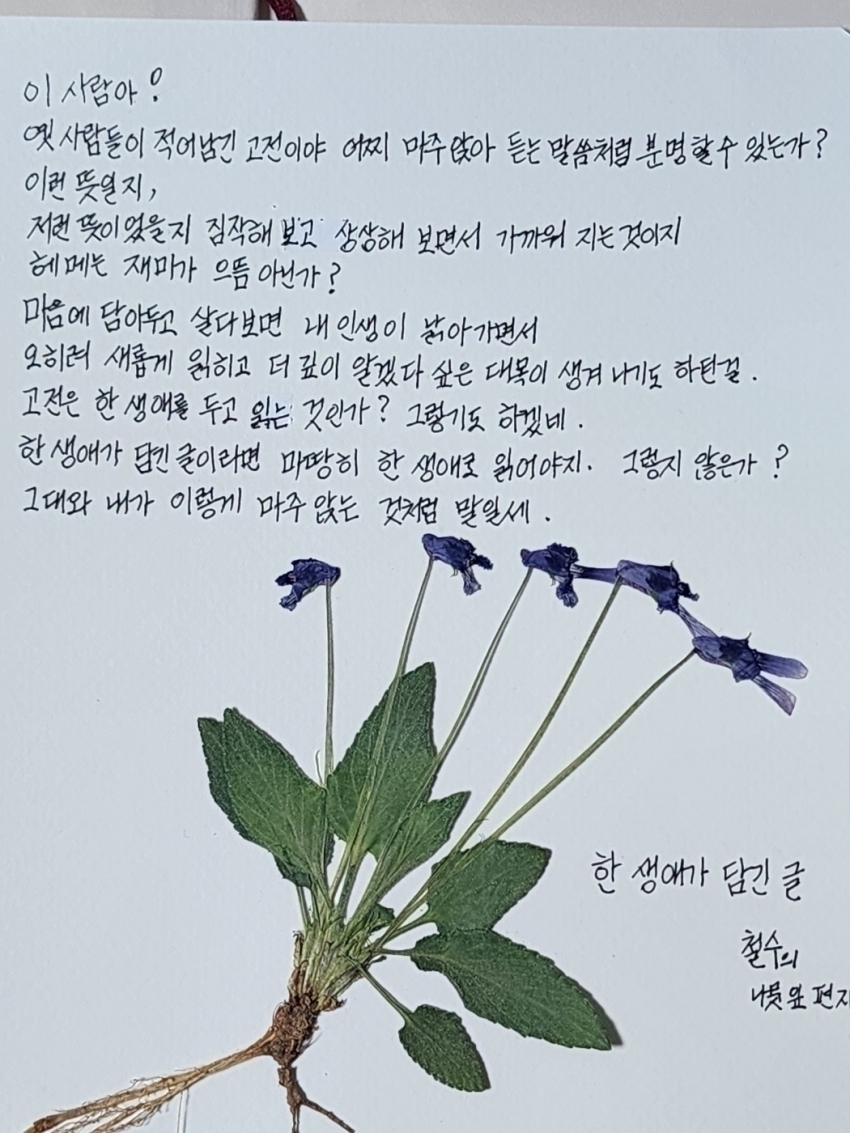 이 사람아!
옛 사람들이 적어남긴 고전이야 어찌 마주앉아 듣는 말씀처럼 분명할 수 있는가?
이런 뜻일지,
저런 뜻이었을지 짐작해 보고 상상해 보면서 가까워 지는 것이지
헤메는 재미가 으뜸 아닌가?
마음에 담아두고 살다보면 내 인생이 낡아가면서
오히려 새롭게 읽히고 더 깊이 알겠다 싶은 대목이 생겨 나기도 하던걸.
고전은 한 생애를 두고 읽는 것인가? 그렇기도 하겠네.
한 생애가 담긴 글이라면 마땅히 한 생애로 읽어야지. 그렇지 않은가?
그대와 내가 이렇게 마주 앉는 것처럼 말일세.
한 생애가 담긴 글
철수의
나뭇잎 편지